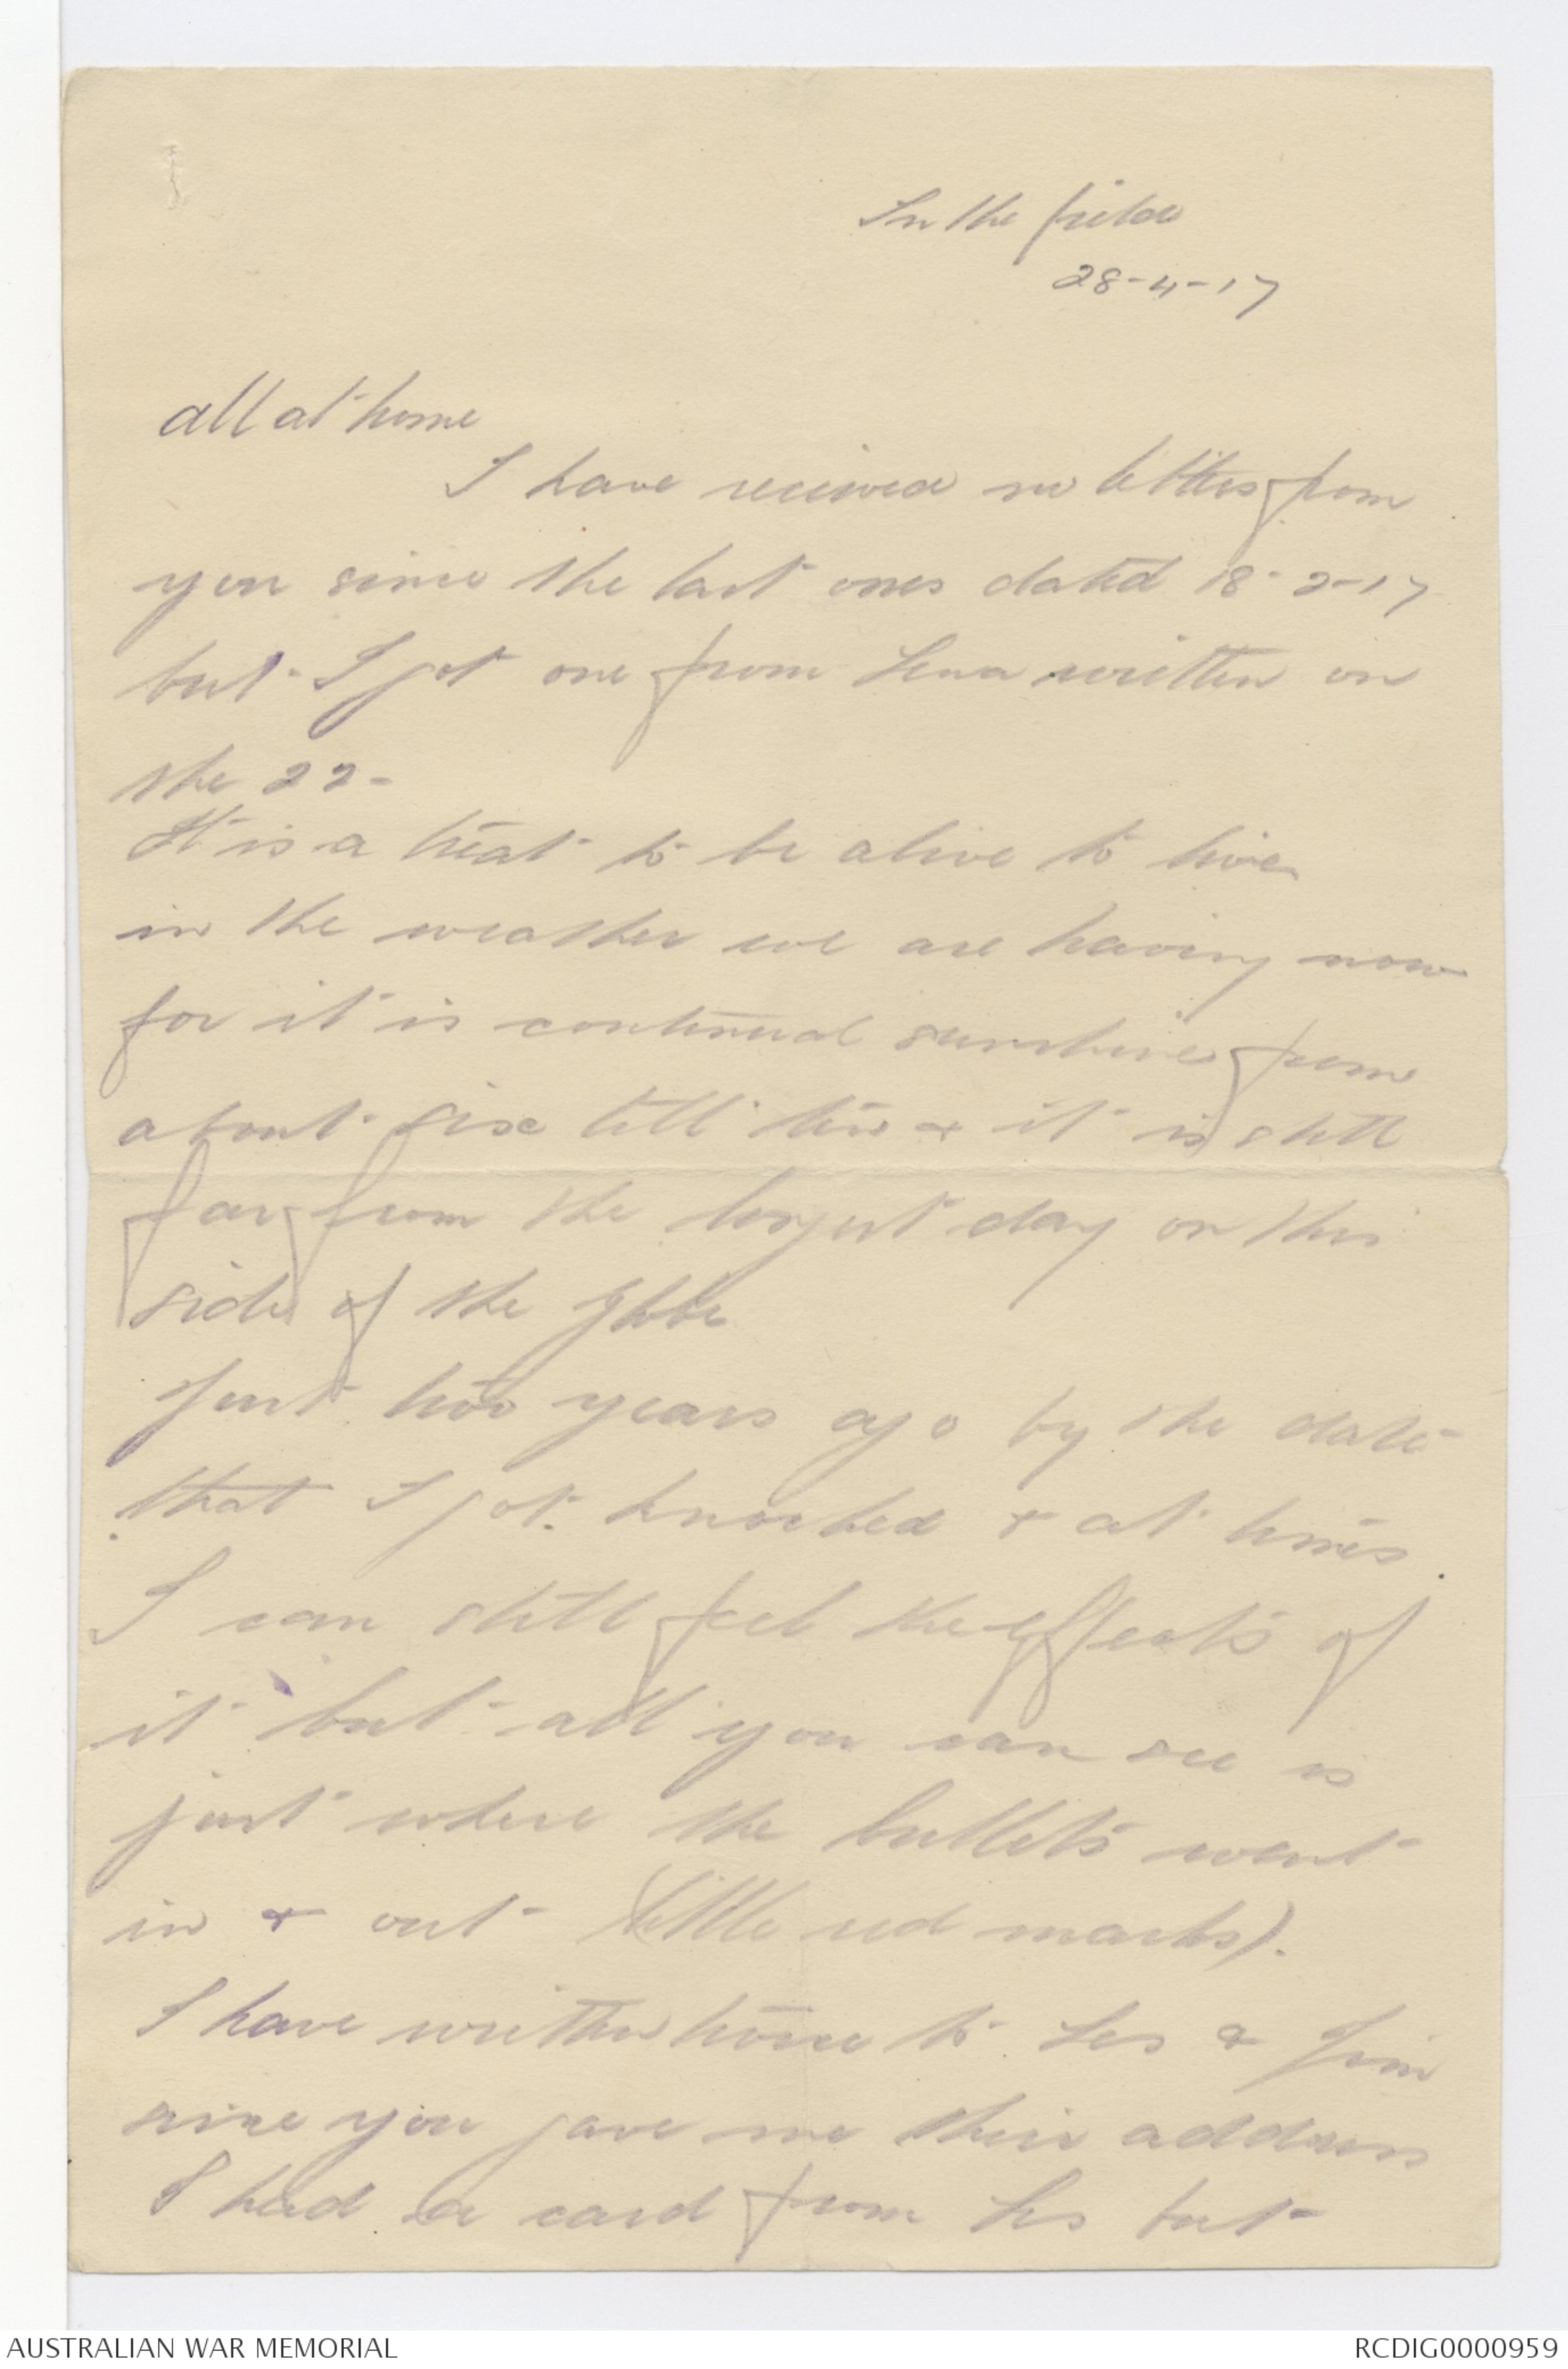 In the field
28-4-17
all at home
I have received no letters from
you since the last ones dated 18-2-17
but I got one from Lena written on
the 22-
It is a treat to be alive to live
in the weather we are having now
for it is continual sunshine from
about six till & it is still
far from the longest day on this
side of the globe
Just two years ago by the date
that I got knocked & at times
I can still feel the effects of
it but all you can see is
just where the bullets went
in & out (little red marks).
I have written to Les & Jim
since you gave me their address
I had a card from Les but
AUSTRALIAN WAR MEMORIAL
RCDIG0000959